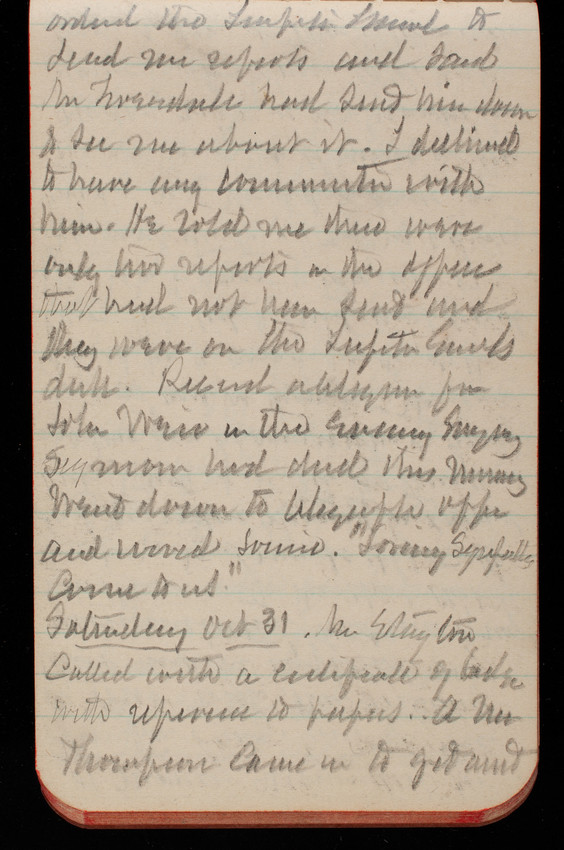 ordered the Inspector General to
send me reports and said
Mr Truesdale had send him down
to see me about it. I declined
to have any communtn with
him. He told me there were
only two reports in the office
that had not been send and
they were on the Inspector Genrls
desk. Received a telegram from
John Weir in the Evening saying
Seymour had died this morning
Went down to telegraph office
and wired some. "Loving Sympathy
Come to us."
Saturday Oct 31. Mr Slayton
Called with a certificate of
with reference to papers. A Mr
Thompson came in to get aunt